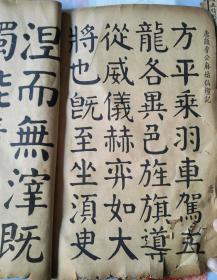 唐顏魯公麻姑仙壇記
方平乘羽車駕五
龍各異色旌旗導
從威儀赫弈如大
將也旣至坐湏臾
涅而無滓旣